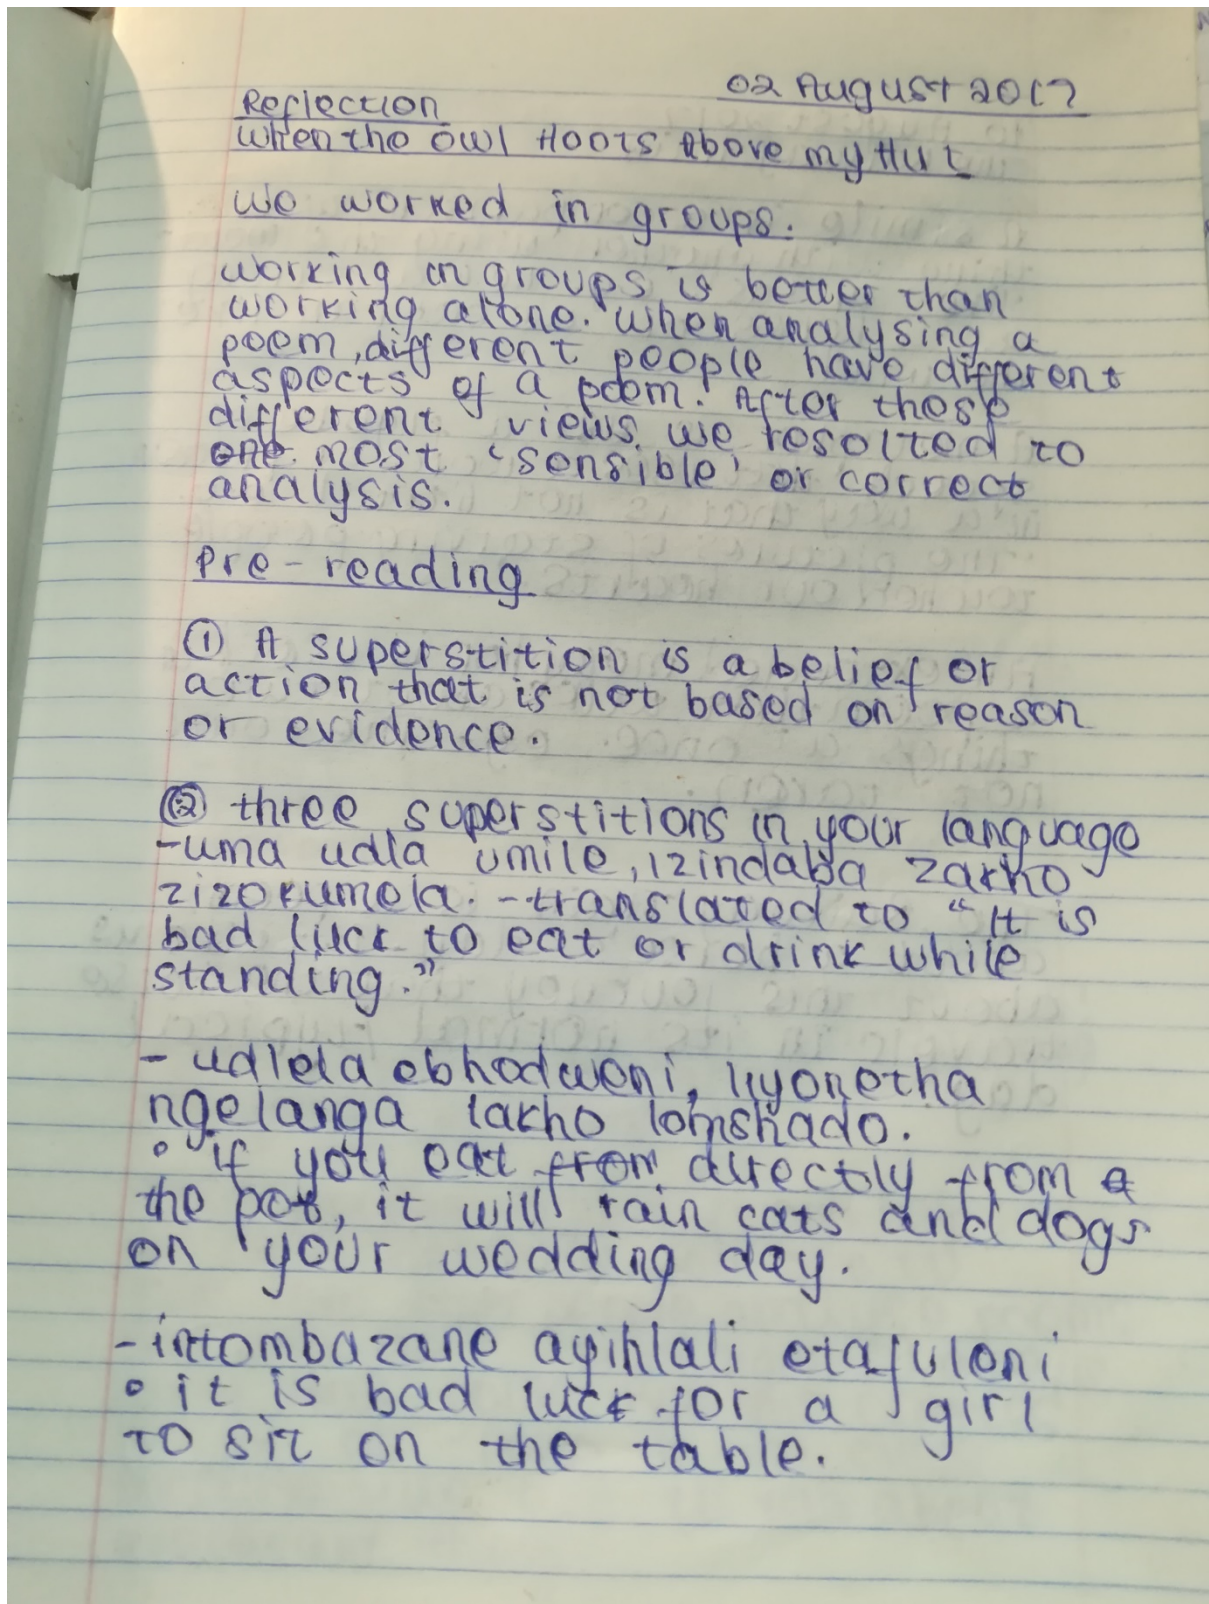 02 August 2017
Reflection
When the Owl Hoots Above my Hut
We worked in groups.
Working in groups is better than
working alone. When analysing a
poem, different people have different
aspects of a poem. After those
different views, we resolted to
one most 'sensible' or correct
analysis.
Pre-reading
① A superstition is a belief or
action that is not based on reason
or evidence.
② three superstitions in your language
-uma udla umile, izindaba zakho
zizokumela. - translated to "It is
bad luck to eat or drink while
standing."
- udlela ebhodweni, liyonetha
ngelanga lakho lomshado.
• if you eat from directly from a
the pot, it will rain cats and dogs
on your wedding day.
- intombazane ayihlali etafuleni
• it is bad luck for a girl
to sit on the table.